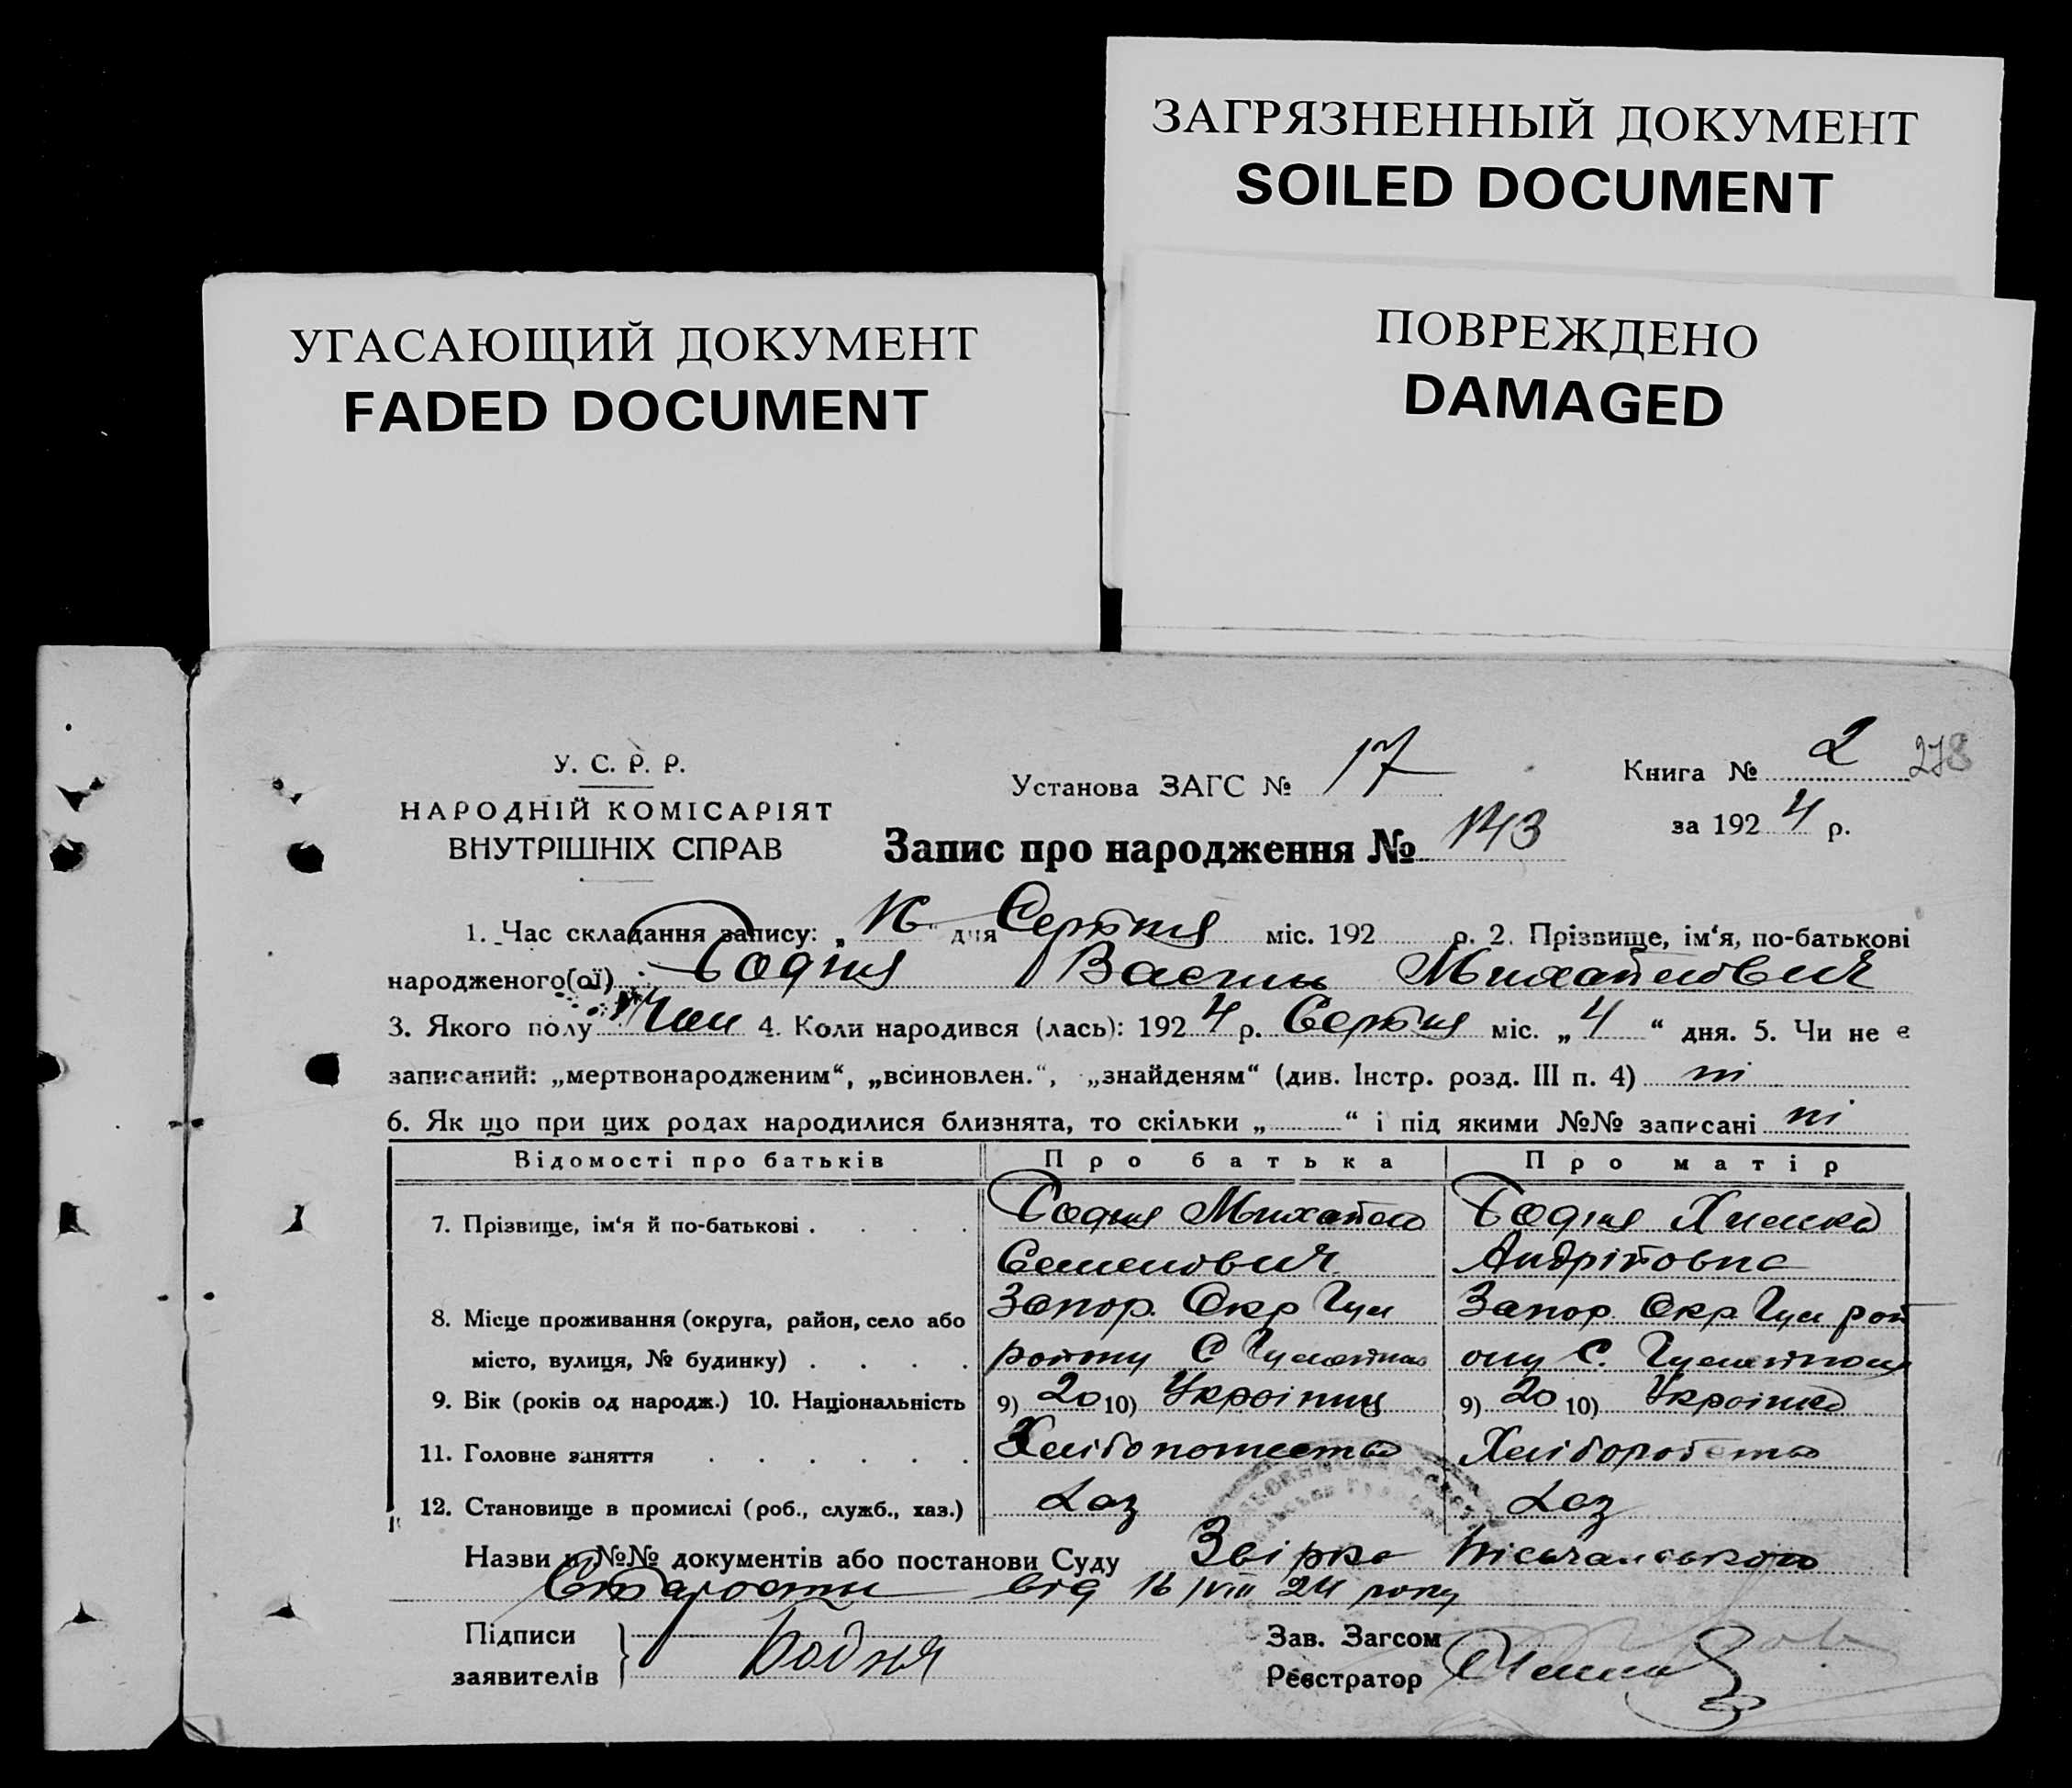 ЗАГРЯЗНЕННЫЙ ДОКУМЕНТ
SOILED DOCUMENT
УГАСАЮЩИЙ ДОКУМЕНТ
FADED DOCUMENT
ПОВРЕЖДЕНО
DAMAGED
У. С. Р. Р.
НАРОДНІЙ КОМІСАРІЯТ
ВНУТРІШНІХ СПРАВ
Установа ЗАГС № 17
Книга № 2 278
за 1924 р.
Запис про народження № 143
1. Час складання запису: „16“ дня Серпня міс. 192 р. 2. Прізвище, ім‘я, по-батькові
народженого(ої) Бодня Василь Михайлович
3. Якого полу Чол 4. Коли народився (лась): 1924 р. Серпня міс. „4“ дня. 5. Чи не є
записаний: „мертвонародженим“, „всиновлен.“, „знайденям“ (див. Інстр. розд. III п. 4) ні
6. Як що при цих родах народилися близнята, то скільки „ “ і під якими №№ записані ні
Відомості про батьків Про батька Про матір
7. Прізвище, ім‘я й по-батькові Бодня Михайло Бодня
Семенович Андріївна
8. Місце проживання (округа, район, село або Запор. Окр Запор. Окр.
місто, вулиця, № будинку) району С ону С.
9. Вік (років од народж.) 10. Національність 9) 20 10) Українец 9) 20 10) Українка
11. Головне заняття Хліборобство
12. Становище в промислі (роб., служб., хаз.) Хаз Хаз
Назви и №№ документів або постанови Суду
від 16/VIII 24 року
Підписи
заявителів Бодня
Зав. Загсом
Реєстратор